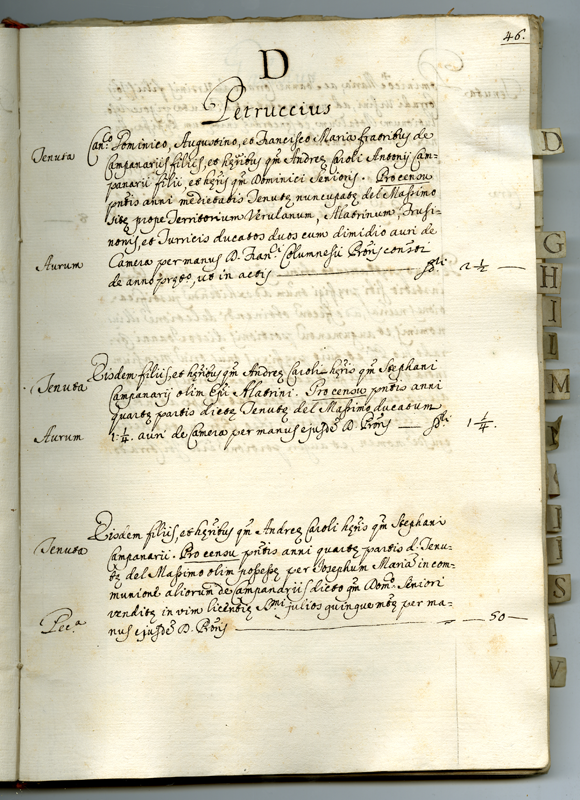 46.
D
Petruccius
Tenuta Can.co Dominico, Augustino, et Francisco Maria fratribus de
Campanariis filiis, et hęribus qm Andreę Caroli Antonij Cam-
panarii filii, et hęris qm Dominici Senioris. Pro censu
pntis anni medietatis Tenutę nuncupatę del Massimo
sitę prope Territorium Verulanum, Alatrinum, Frusi-
nonis, et Turricis ducatos duos cum dimidio auri de
Aurum Camera per manus D. Fran.ci Columnesii Pronis
de anno pręto, ut in actis 2 1/2
Tenuta Eisdem filiis, et hęribus qm Andreę Caroli hęris qm Stephani
Campanarij olim Alatrini. Pro censu pntis anni
quartę partis dictę Tenutę del Massimo ducatum
Aurum 1 1/4. auri de Camera per manus ejusde D. Pronis 1 1/4.
Tenuta Eisdem filiis, et hęribus qm Andreę Caroli hęris qm Stephani
Campanarii. Pro censu pntis anni quartę partis d. Tenu-
tę del Massimo olim possessę per Josephum Maria in com-
munione aliorum de Campanariis dicto qm Dom.co Seniori
venditę in vim licentię Smi julios quinque mtę per ma-
Pec.a nus ejusde D. Pronis 50
D
G
H
I
L
M
S
V